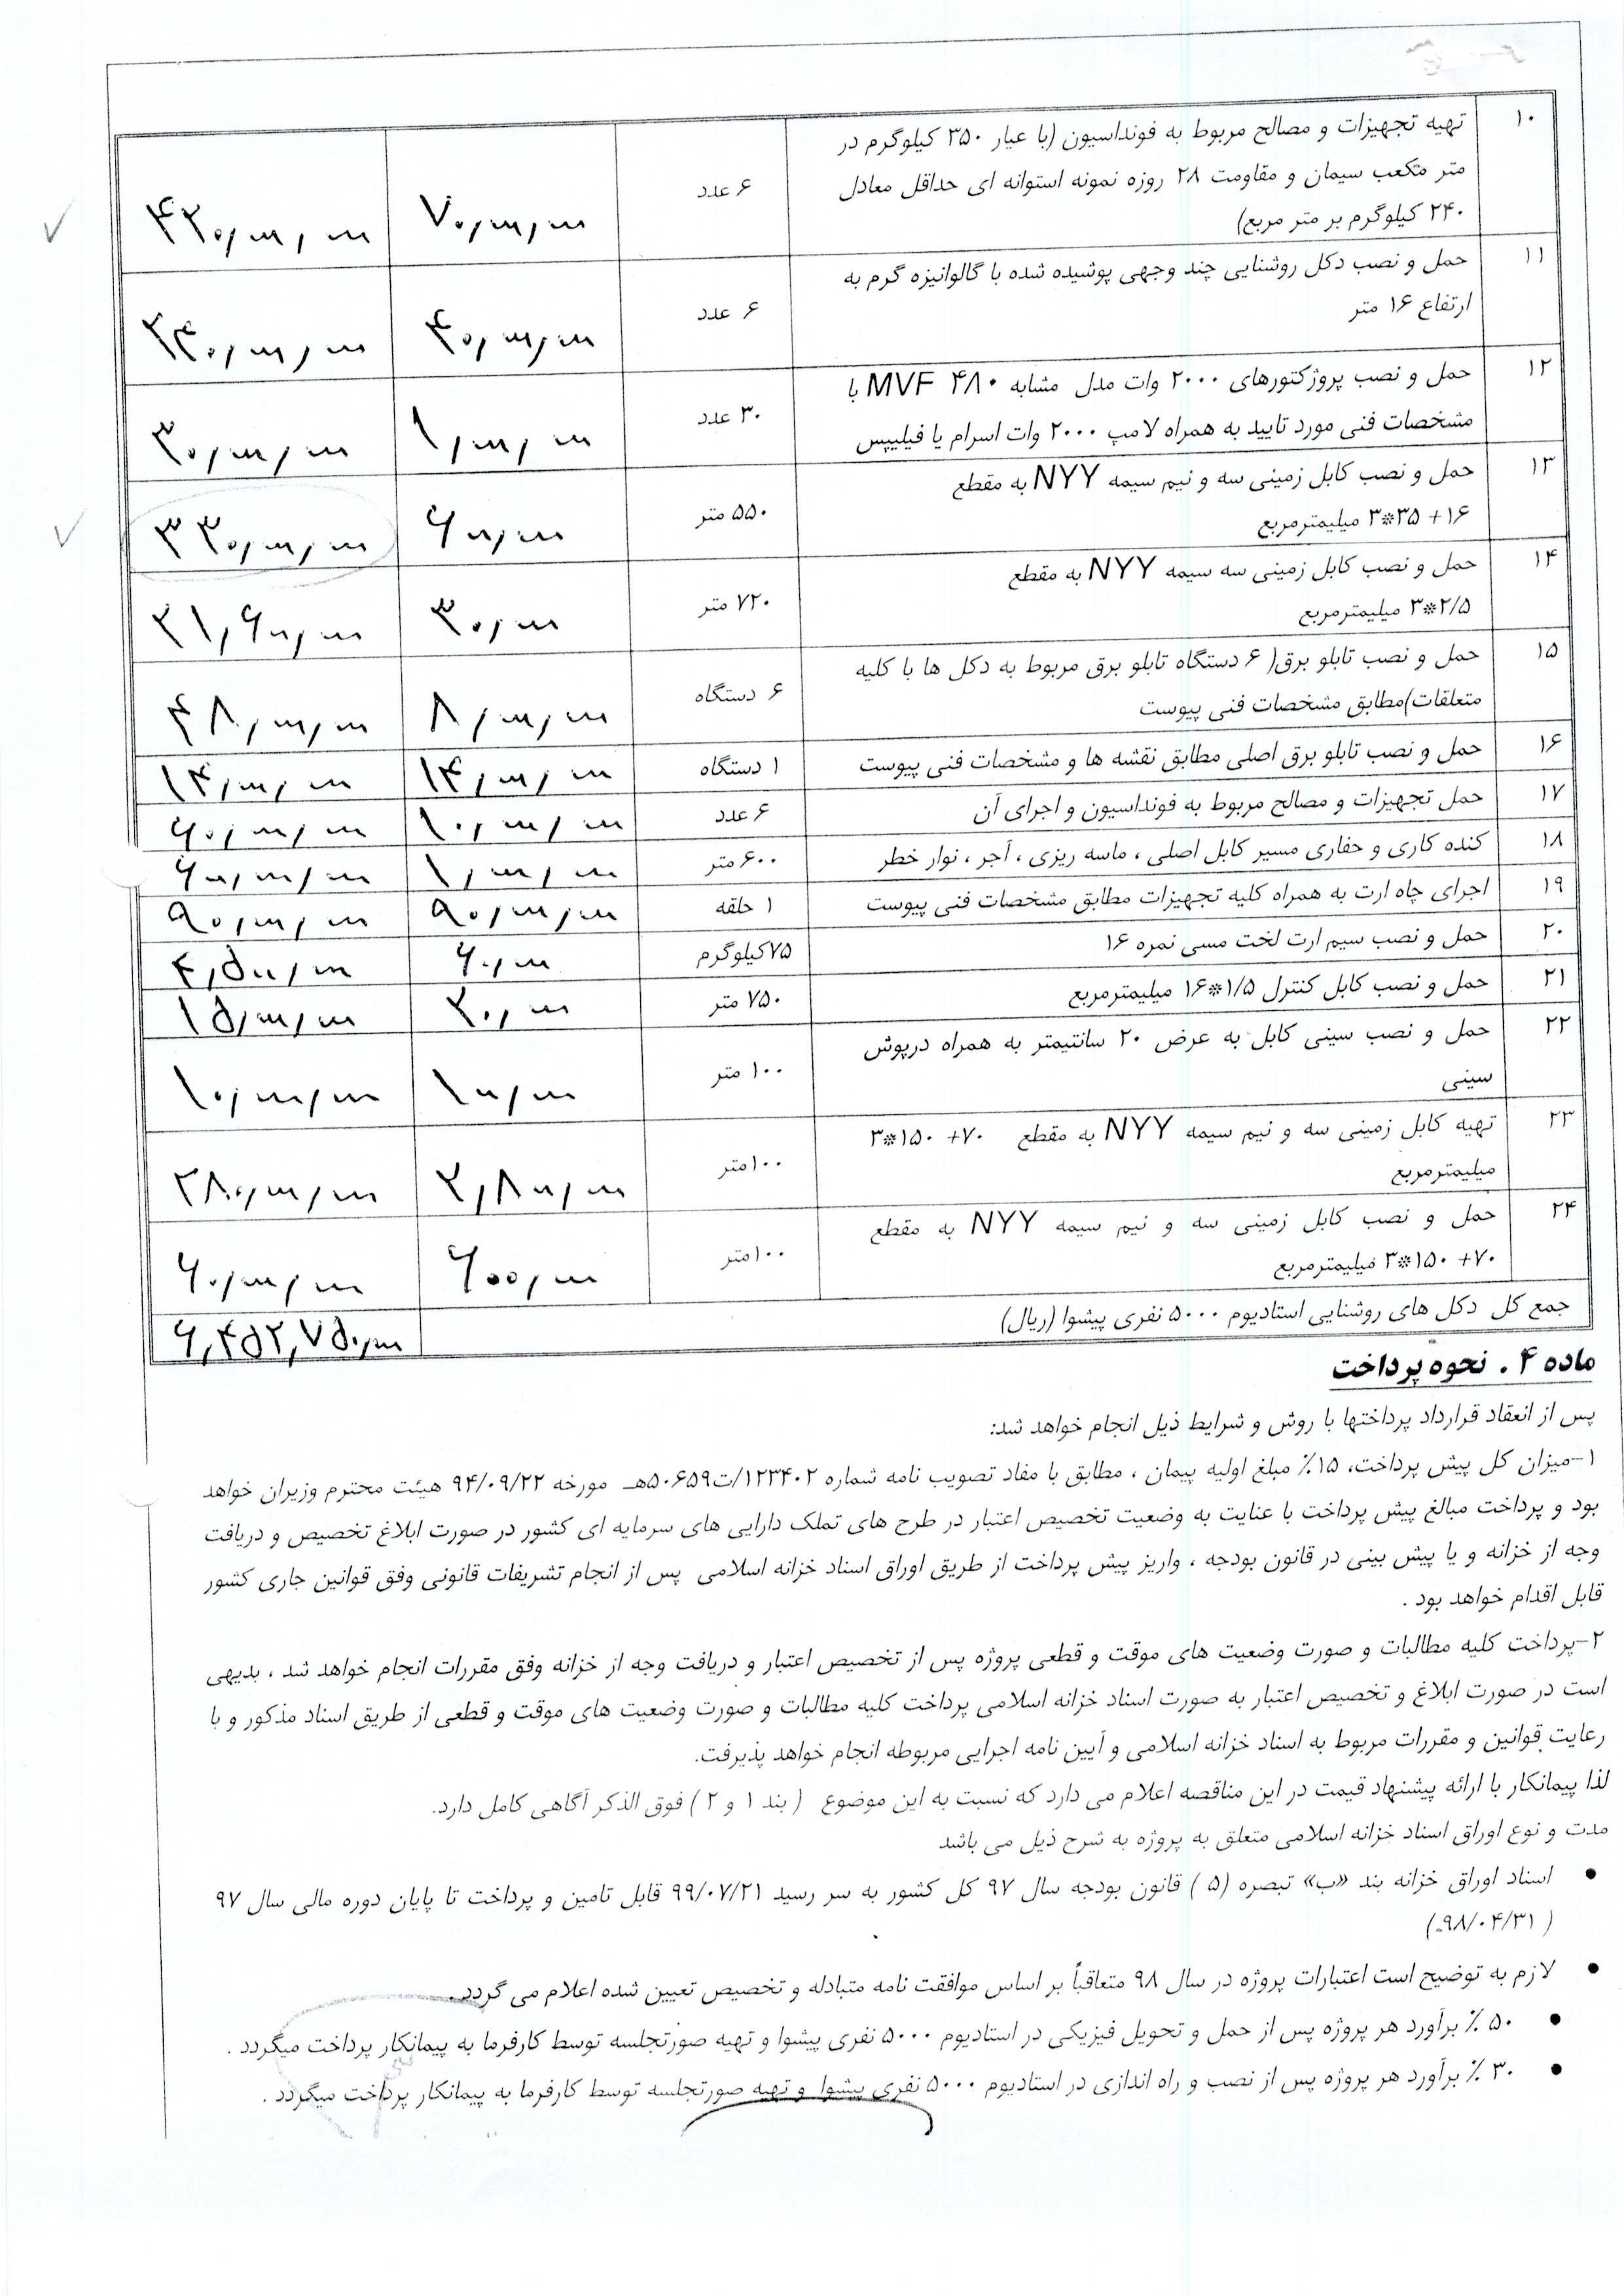 ۱۰ تهیه تجهیزات و مصالح مربوط به فونداسیون (با عیار ۳۵۰ کیلوگرم در
متر مکعب سیمان و مقاومت ۲۸ روزه نمونه استوانه ای حداقل معادل
۲۴۰ کیلوگرم بر متر مربع) ۶ عدد ۷۰,۰۰۰,۰۰۰ ۴۲۰,۰۰۰,۰۰۰
۱۱ حمل و نصب دکل روشنایی چند وجهی پوشیده شده با گالوانیزه گرم به
ارتفاع ۱۶ متر ۶ عدد ۴۰,۰۰۰,۰۰۰ ۲۴۰,۰۰۰,۰۰۰
۱۲ حمل و نصب پروژکتورهای ۲۰۰۰ وات مدل مشابه MVF ۴۸۰ با
مشخصات فنی مورد تایید به همراه لامپ ۲۰۰۰ وات اسرام یا فیلیپس ۳۰ عدد ۱,۰۰۰,۰۰۰ ۳۰,۰۰۰,۰۰۰
۱۳ حمل و نصب کابل زمینی سه و نیم سیمه NYY به مقطع
۱۶+ ۳۵*۳ میلیمترمربع ۵۵۰ متر ۶۰۰,۰۰۰ ۳۳۰,۰۰۰,۰۰۰
۱۴ حمل و نصب کابل زمینی سه سیمه NYY به مقطع
۲/۵*۳ میلیمترمربع ۷۲۰ متر ۳۰,۰۰۰ ۲۱,۶۰۰,۰۰۰
۱۵ حمل و نصب تابلو برق( ۶ دستگاه تابلو برق مربوط به دکل ها با کلیه
متعلقات)مطابق مشخصات فنی پیوست ۶ دستگاه ۸,۰۰۰,۰۰۰ ۴۸,۰۰۰,۰۰۰
۱۶ حمل و نصب تابلو برق اصلی مطابق نقشه ها و مشخصات فنی پیوست ۱ دستگاه ۱۴,۰۰۰,۰۰۰ ۱۴,۰۰۰,۰۰۰
۱۷ حمل تجهیزات و مصالح مربوط به فونداسیون و اجرای آن ۶ عدد ۱۰,۰۰۰,۰۰۰ ۶۰,۰۰۰,۰۰۰
۱۸ کنده کاری و حفاری مسیر کابل اصلی ، ماسه ریزی ، آجر ، نوار خطر ۶۰۰ متر ۱,۰۰۰,۰۰۰ ۶۰۰,۰۰۰,۰۰۰
۱۹ اجرای چاه ارت به همراه کلیه تجهیزات مطابق مشخصات فنی پیوست ۱ حلقه ۹۰,۰۰۰,۰۰۰ ۹۰,۰۰۰,۰۰۰
۲۰ حمل و نصب سیم ارت لخت مسی نمره ۱۶ ۷۵کیلوگرم ۶۰,۰۰۰ ۴,۵۰۰,۰۰۰
۲۱ حمل و نصب کابل کنترل ۱/۵*۱۶ میلیمترمربع ۷۵۰ متر ۲۰,۰۰۰ ۱۵,۰۰۰,۰۰۰
۲۲ حمل و نصب سینی کابل به عرض ۲۰ سانتیمتر به همراه درپوش
سینی ۱۰۰ متر ۱۰۰,۰۰۰ ۱۰,۰۰۰,۰۰۰
۲۳ تهیه کابل زمینی سه و نیم سیمه NYY به مقطع ۷۰+ ۱۵۰*۳
میلیمترمربع ۱۰۰متر ۲,۸۰۰,۰۰۰ ۲۸۰,۰۰۰,۰۰۰
۲۴ حمل و نصب کابل زمینی سه و نیم سیمه NYY به مقطع
۷۰+ ۱۵۰*۳ میلیمترمربع ۱۰۰متر ۶۰۰,۰۰۰ ۶۰,۰۰۰,۰۰۰
جمع کل دکل های روشنایی استادیوم ۵۰۰۰ نفری پیشوا (ریال) ۶,۴۵۲,۷۵۰,۰۰۰
ماده ۴ . نحوه پرداخت
پس از انعقاد قرارداد پرداختها با روش و شرایط ذیل انجام خواهد شد:
۱-میزان کل پیش پرداخت، ۱۵٪ مبلغ اولیه پیمان ، مطابق با مفاد تصویب نامه شماره ۱۲۳۴۰۲/ت۵۰۶۵۹هـ مورخه ۹۴/۰۹/۲۲ هیئت محترم وزیران خواهد
بود و پرداخت مبالغ پیش پرداخت با عنایت به وضعیت تخصیص اعتبار در طرح های تملک دارایی های سرمایه ای کشور در صورت ابلاغ تخصیص و دریافت
وجه از خزانه و یا پیش بینی در قانون بودجه ، واریز پیش پرداخت از طریق اوراق اسناد خزانه اسلامی پس از انجام تشریفات قانونی وفق قوانین جاری کشور
قابل اقدام خواهد بود .
۲-پرداخت کلیه مطالبات و صورت وضعیت های موقت و قطعی پروژه پس از تخصیص اعتبار و دریافت وجه از خزانه وفق مقررات انجام خواهد شد ، بدیهی
است در صورت ابلاغ و تخصیص اعتبار به صورت اسناد خزانه اسلامی پرداخت کلیه مطالبات و صورت وضعیت های موقت و قطعی از طریق اسناد مذکور و با
رعایت قوانین و مقررات مربوط به اسناد خزانه اسلامی و آیین نامه اجرایی مربوطه انجام خواهد پذیرفت.
لذا پیمانکار با ارائه پیشنهاد قیمت در این مناقصه اعلام می دارد که نسبت به این موضوع ( بند ۱ و ۲ ) فوق الذکر آگاهی کامل دارد.
مدت و نوع اوراق اسناد خزانه اسلامی متعلق به پروژه به شرح ذیل می باشد
• اسناد اوراق خزانه بند «ب» تبصره (۵ ) قانون بودجه سال ۹۷ کل کشور به سر رسید ۹۹/۰۷/۲۱ قابل تامین و پرداخت تا پایان دوره مالی سال ۹۷
( ۹۸/۰۴/۳۱.)
• لازم به توضیح است اعتبارات پروژه در سال ۹۸ متعاقباً بر اساس موافقت نامه متبادله و تخصیص تعیین شده اعلام می گردد.
• ۵۰ ٪ برآورد هر پروژه پس از حمل و تحویل فیزیکی در استادیوم ۵۰۰۰ نفری پیشوا و تهیه صورتجلسه توسط کارفرما به پیمانکار پرداخت میگردد .
• ۳۰ ٪ برآورد هر پروژه پس از نصب و راه اندازی در استادیوم ۵۰۰۰ نفری پیشوا و تهیه صورتجلسه توسط کارفرما به پیمانکار پرداخت میگردد .